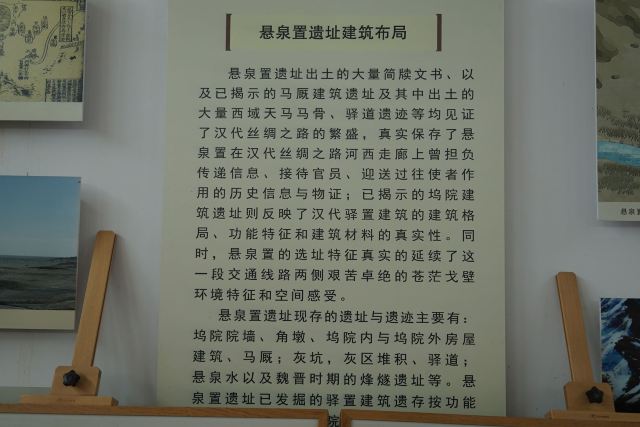 悬泉置遗址建筑布局
悬泉置遗址出土的大量简牍文书、以
及已揭示的马厩建筑遗址及其中出土的
大量西域天马马骨、驿道遗迹等均见证
了汉代丝绸之路的繁盛，真实保存了悬
泉置在汉代丝绸之路河西走廊上曾担负
传递信息、接待官员、迎送过往使者作
用的历史信息与物证；已揭示的坞院建
筑遗址则反映了汉代驿置建筑的建筑格
局、功能特征和建筑材料的真实性。同
时，悬泉置的选址特征真实的延续了这
一段交通线路两侧艰苦卓绝的苍茫戈壁
环境特征和空间感受。
悬泉置遗址现存的遗址与遗迹主要有：
坞院院墙、角墩、坞院内与坞院外房屋
建筑、马厩；灰坑，灰区堆积、驿道；
悬泉水以及魏晋时期的烽燧遗址等。悬
泉置遗址已发掘的驿置建筑遗存按功能
院
悬泉置